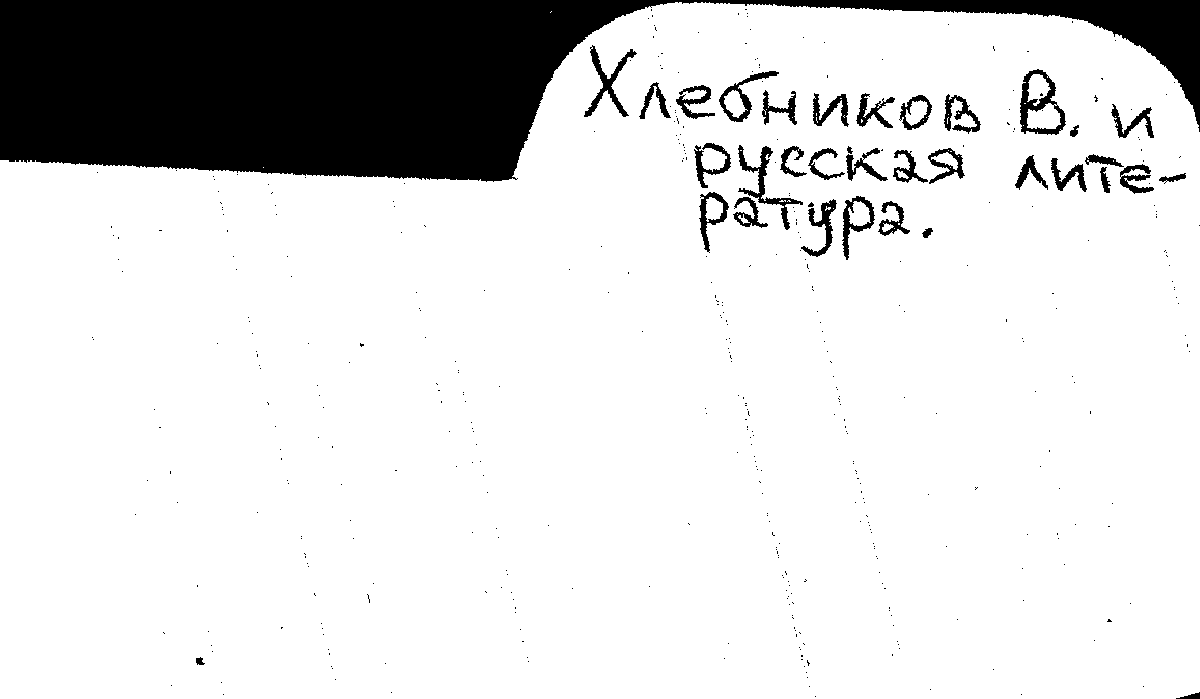 Хлебников В. и
русская лите-
ратура.